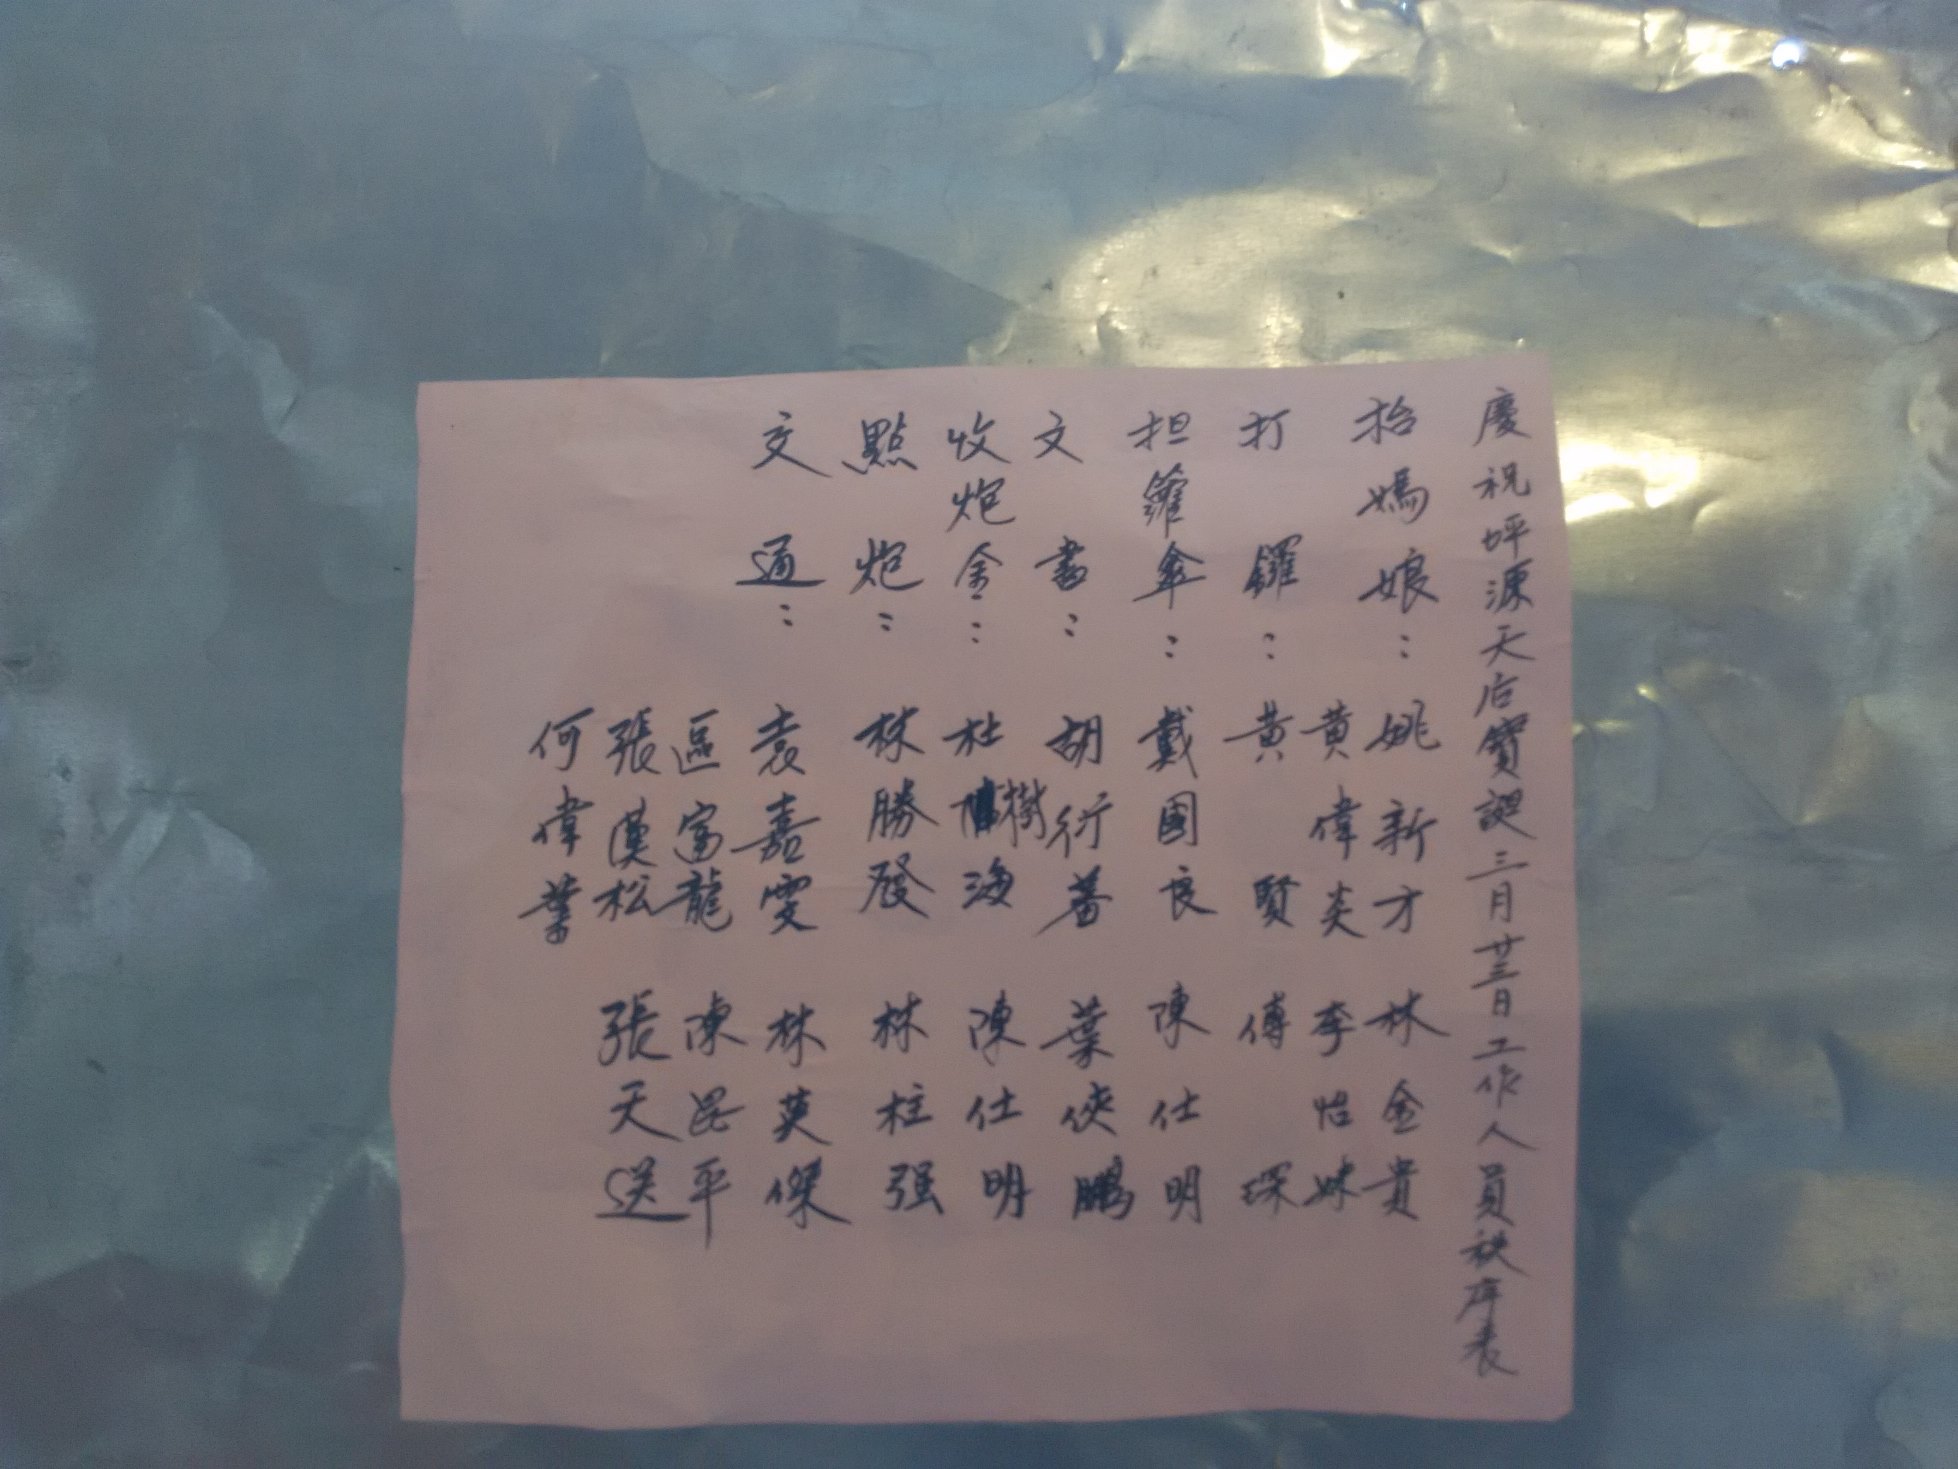 慶祝坪源天后寶誕三月廿三日工作人員秩序表
抬媽娘：姚新才 林金貴
黃偉炎 李怡妹
打鑼：黃賢 傅琛
担籮傘：戴國良 陳仕明
文書：胡衍蕃 葉俠鵬
收炮金：杜樹海 陳仕明
點炮：林勝發 林柱强
交通：袁嘉雯 林英傑
區富龍 陳昆平
張漢松 張天送
何偉業